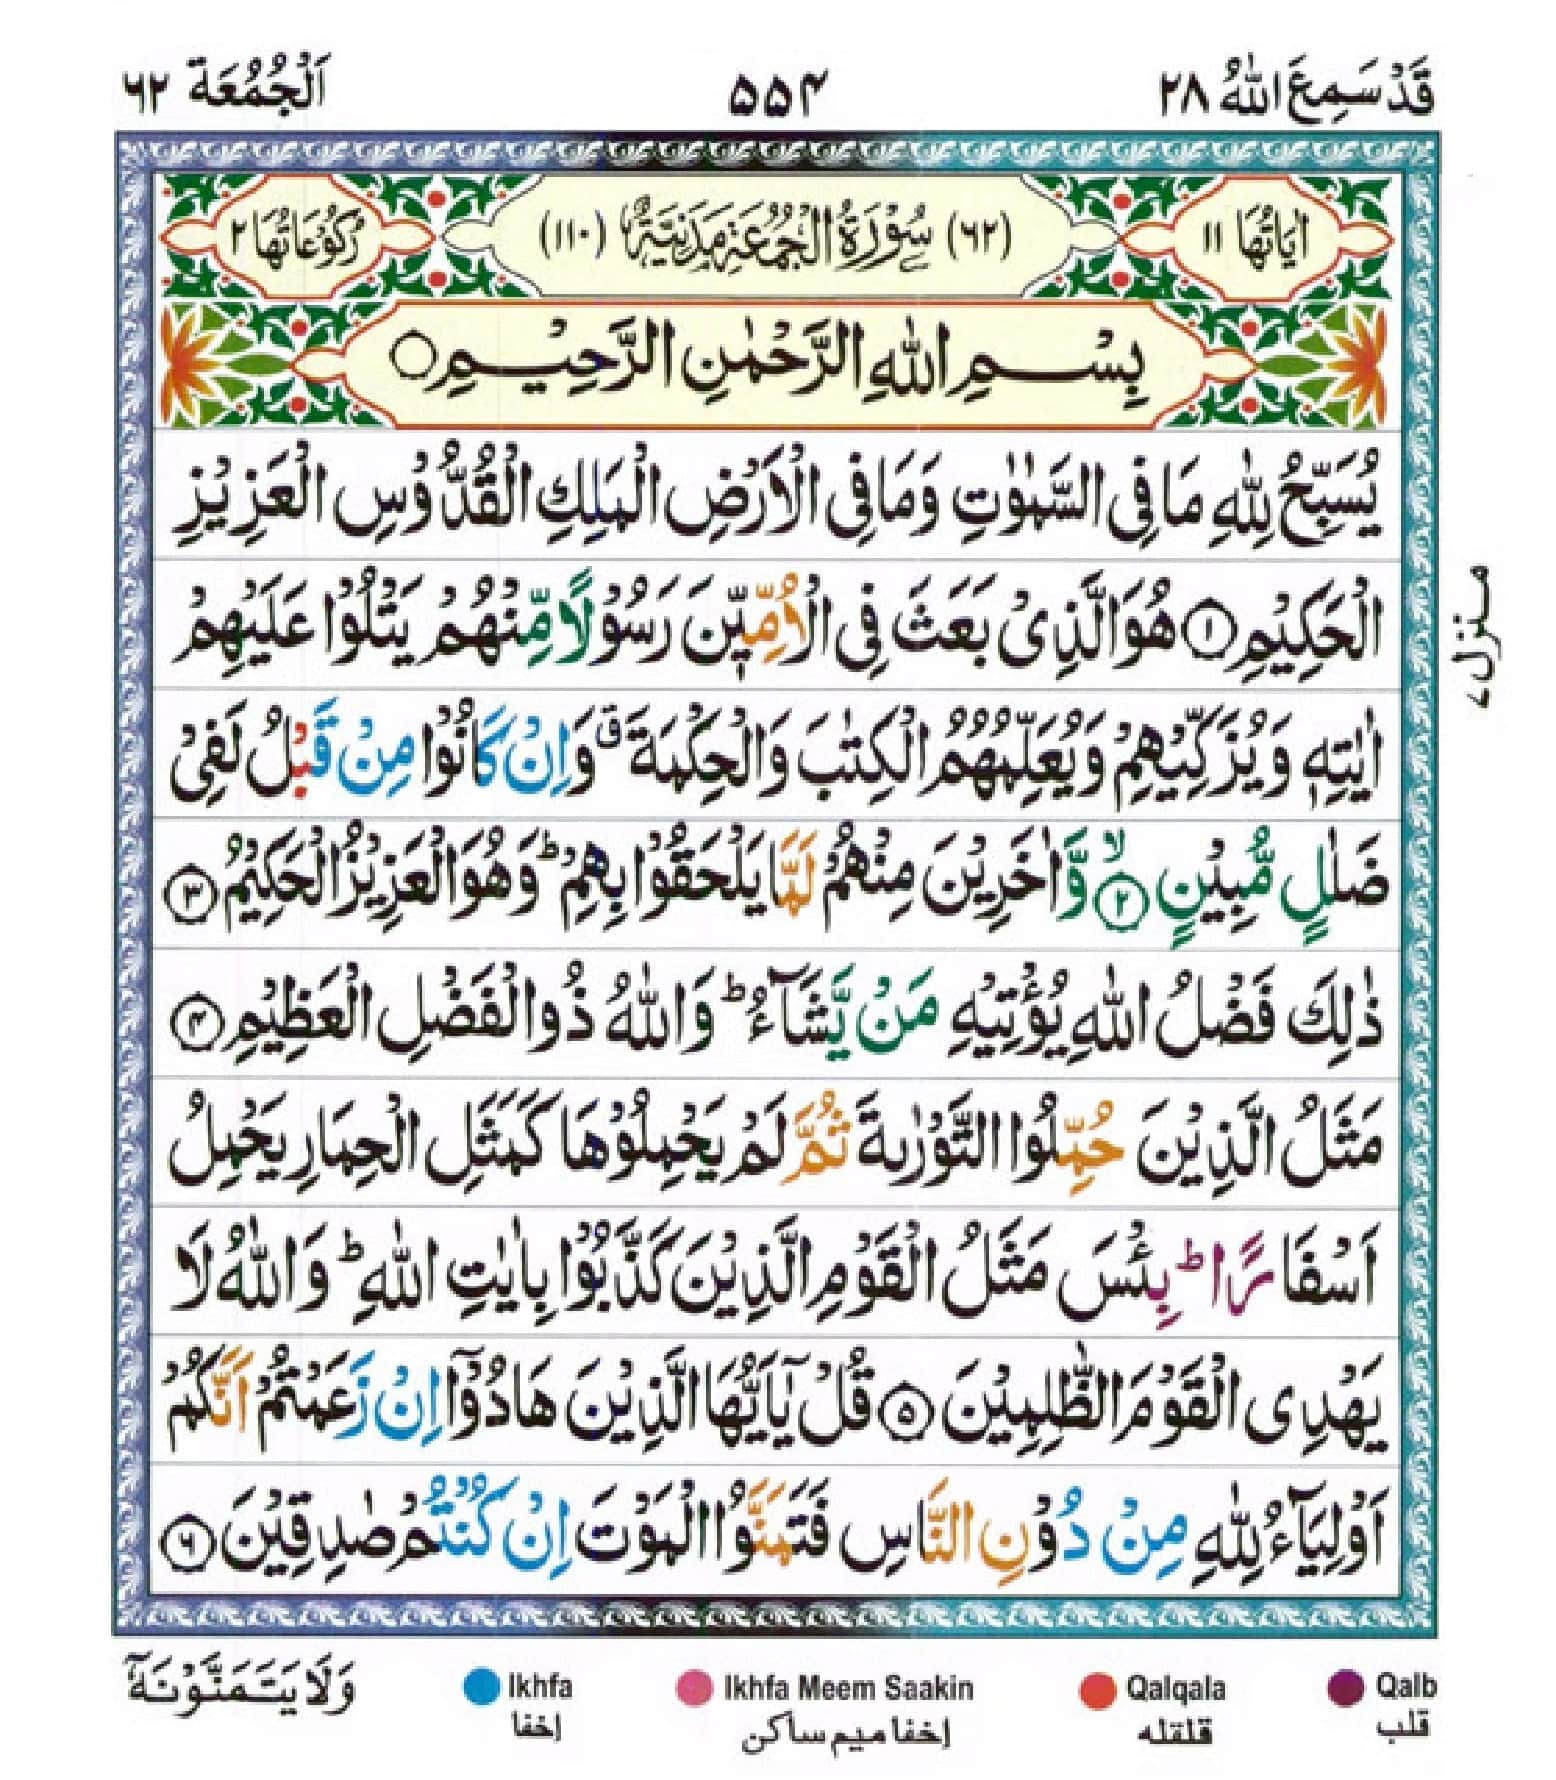 قَدۡ سَمِعَ اللّٰهُ ۲۸
۵۵۴
اَلۡجُمُعَة ۶۲
اٰيَاتُهَا ۱۱
(۶۲) سُوۡرَةُ الۡجُمُعَةِ مَدَنِيَّةٌ (۱۱۰)
رُكُوۡعَاتُهَا ۲
بِسۡمِ اللّٰهِ الرَّحۡمٰنِ الرَّحِيۡمِ ○
يُسَبِّحُ لِلّٰهِ مَا فِى السَّمٰوٰتِ وَمَا فِى الۡاَرۡضِ الۡمَلِكِ الۡقُدُّوۡسِ الۡعَزِيۡزِ
الۡحَكِيۡمِ ۱ هُوَ الَّذِىۡ بَعَثَ فِى الۡاُمِّيّٖنَ رَسُوۡلًا مِّنۡهُمۡ يَتۡلُوۡا عَلَيۡهِمۡ
اٰيٰتِهٖ وَيُزَكِّيۡهِمۡ وَيُعَلِّمُهُمُ الۡكِتٰبَ وَالۡحِكۡمَةَ ق وَاِنۡ كَانُوۡا مِنۡ قَبۡلُ لَفِىۡ
ضَلٰلٍ مُّبِيۡنٍ ۙ ۲ وَّاٰخَرِيۡنَ مِنۡهُمۡ لَمَّا يَلۡحَقُوۡا بِهِمۡ ؕ وَهُوَ الۡعَزِيۡزُ الۡحَكِيۡمُ ۳
ذٰلِكَ فَضۡلُ اللّٰهِ يُؤۡتِيۡهِ مَنۡ يَّشَآءُ ؕ وَاللّٰهُ ذُو الۡفَضۡلِ الۡعَظِيۡمِ ۴
مَثَلُ الَّذِيۡنَ حُمِّلُوا التَّوۡرٰٮةَ ثُمَّ لَمۡ يَحۡمِلُوۡهَا كَمَثَلِ الۡحِمَارِ يَحۡمِلُ
اَسۡفَارًا ؕ بِئۡسَ مَثَلُ الۡقَوۡمِ الَّذِيۡنَ كَذَّبُوۡا بِاٰيٰتِ اللّٰهِ ؕ وَاللّٰهُ لَا
يَهۡدِى الۡقَوۡمَ الظّٰلِمِيۡنَ ۵ قُلۡ يٰۤاَيُّهَا الَّذِيۡنَ هَادُوۡۤا اِنۡ زَعَمۡتُمۡ اَنَّكُمۡ
اَوۡلِيَآءُ لِلّٰهِ مِنۡ دُوۡنِ النَّاسِ فَتَمَنَّوُا الۡمَوۡتَ اِنۡ كُنۡتُمۡ صٰدِقِيۡنَ ۶
منزل ۷
وَلَا يَتَمَنَّوۡنَهٗۤ
Ikhfa
إخفا
Ikhfa Meem Saakin
إخفا ميم ساكن
Qalqala
قلقله
Qalb
قلب